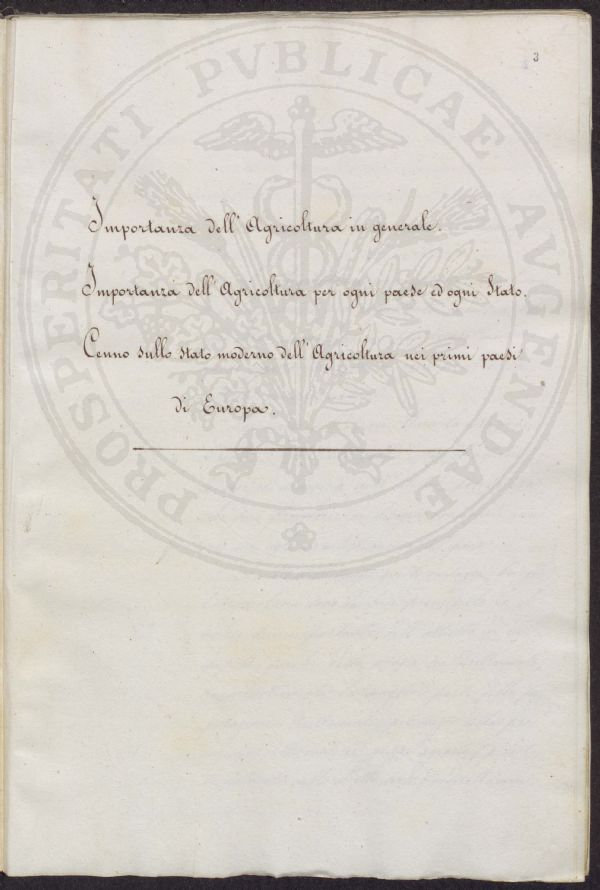 3
PROSPERITATI PVBLICAE AVGENDAE
Importanza dell' Agricoltura in generale.
Importanza dell' Agricoltura per ogni paese ed ogni Stato.
Cenno sullo stato moderno dell' Agricoltura nei primi paesi
di Europa.